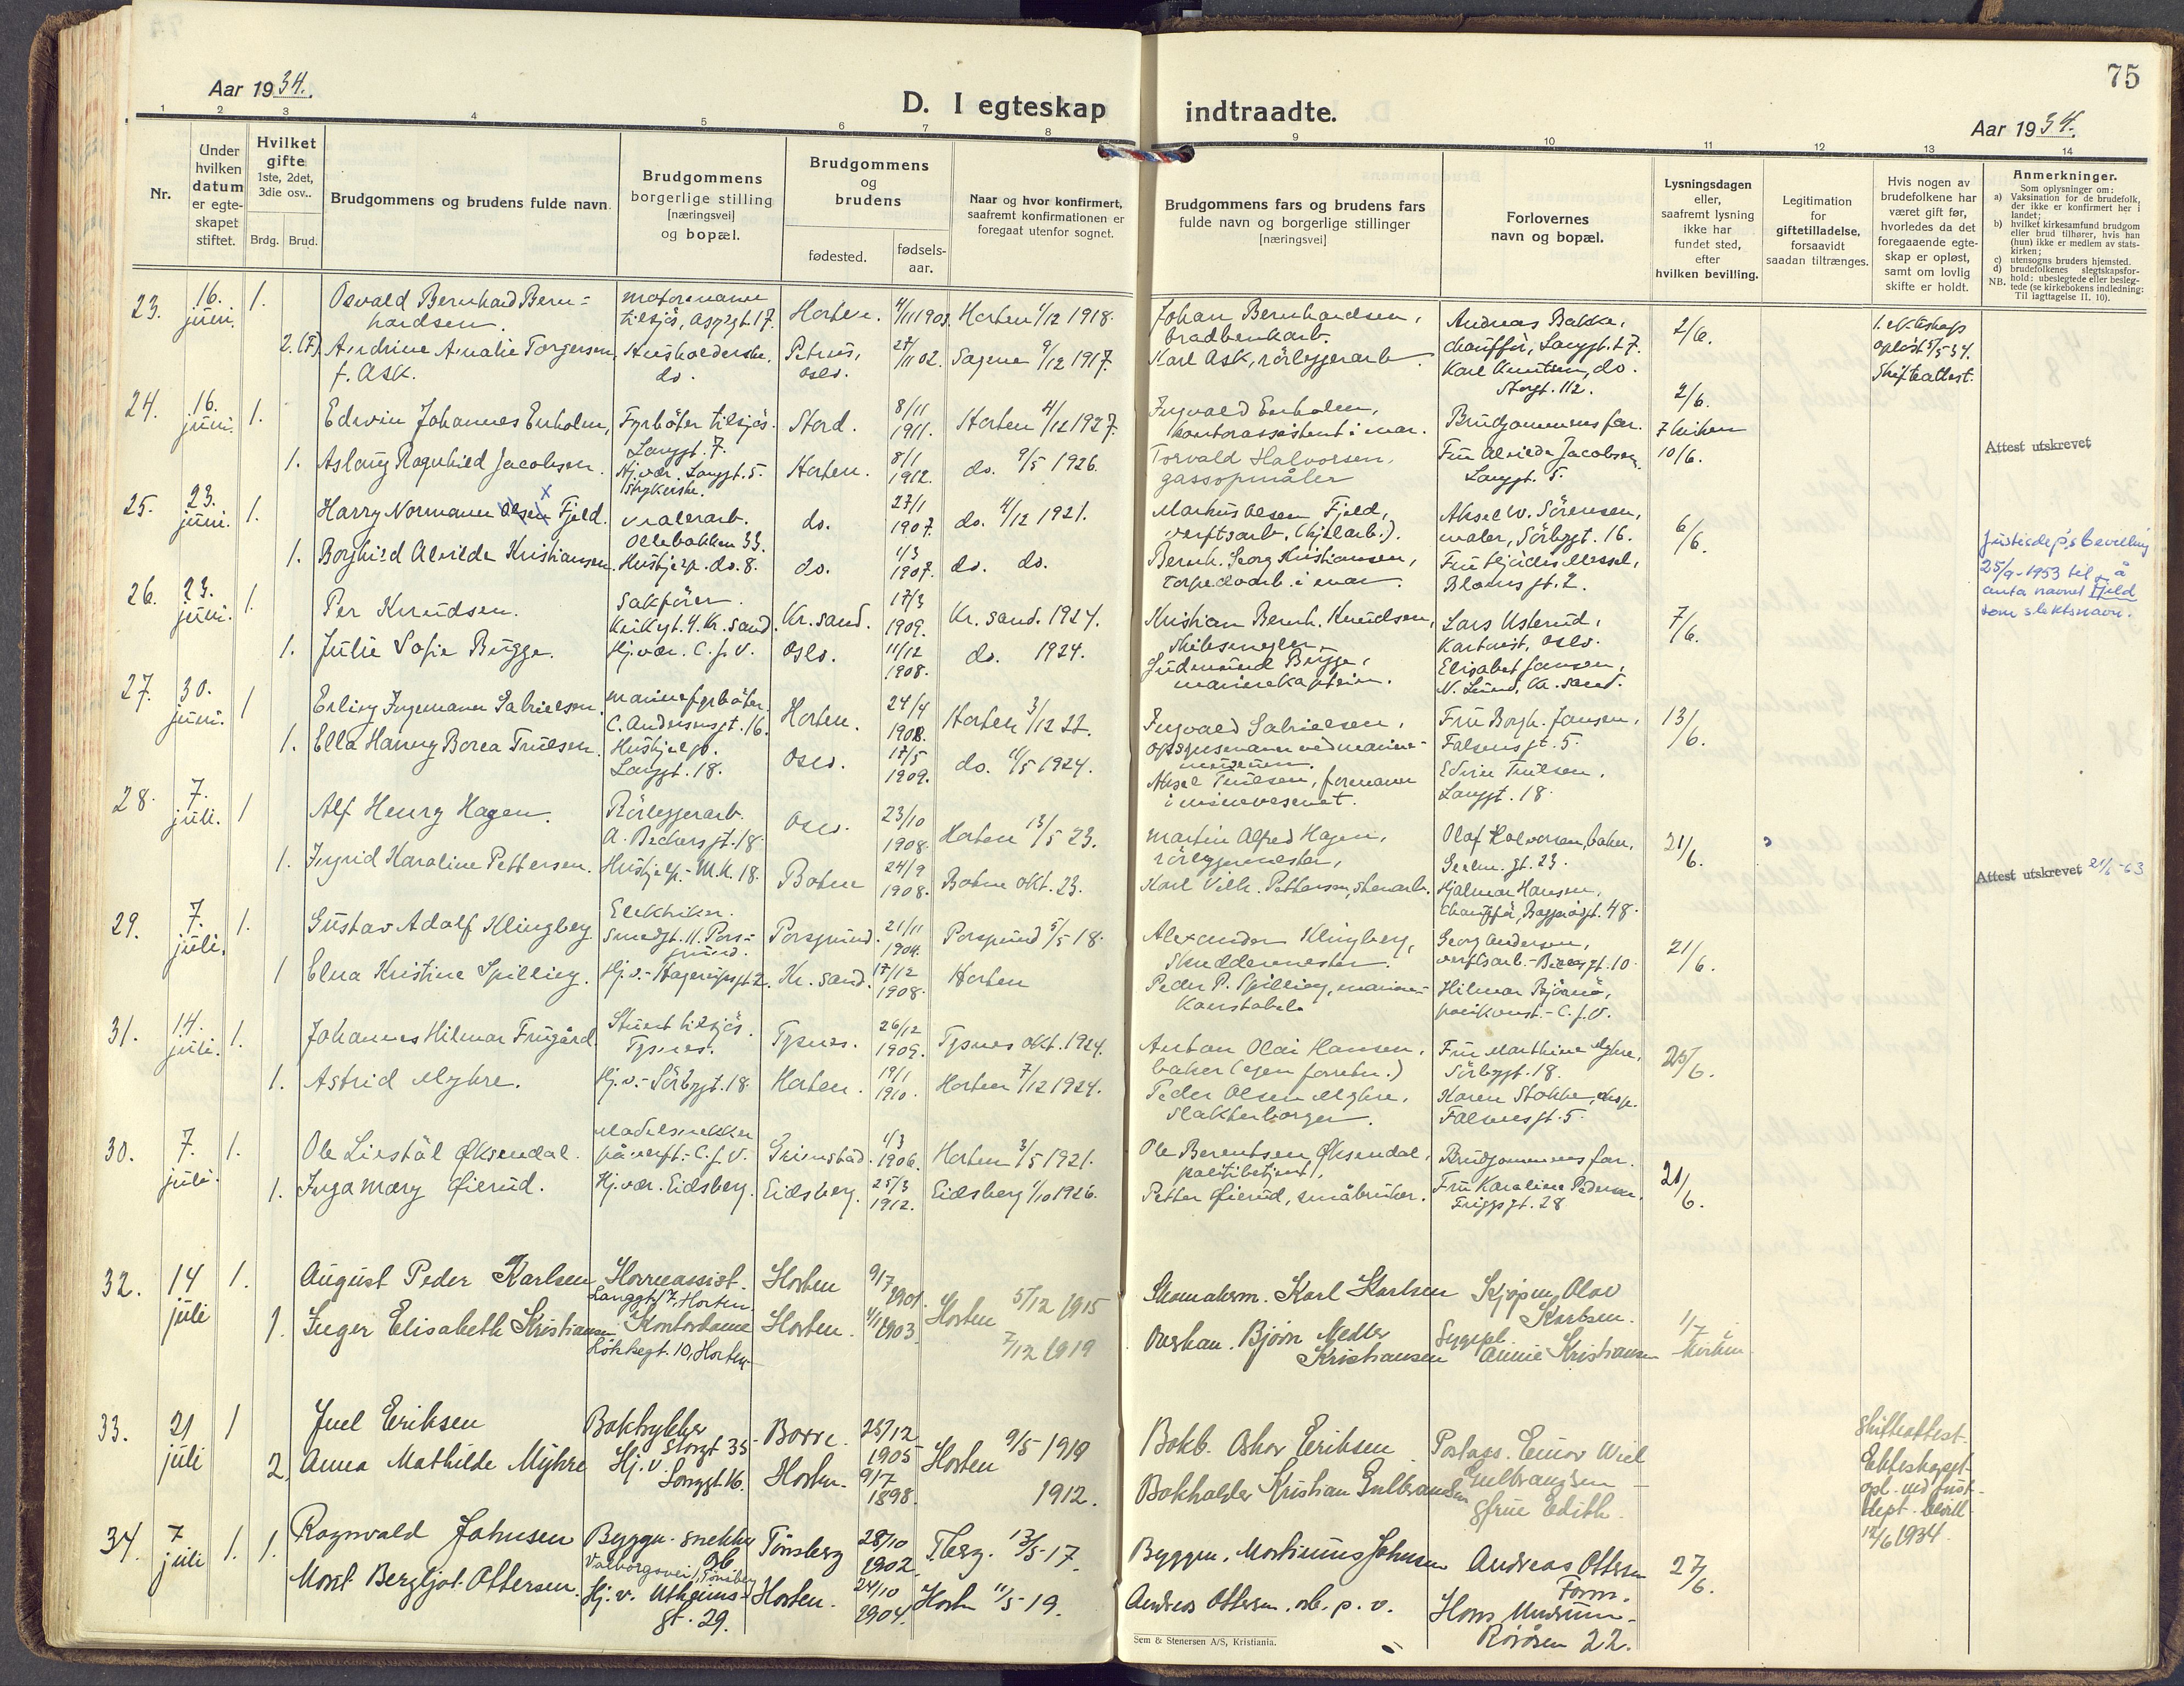 75
Aar 1934.
D. I egteskap
indtraadte.
Aar 1934.
1 2 3 4 5 6 7 8 9 10 11 12 13 14
Nr.
Under
hvilken
datum
er egte-
skapet
stiftet.
Hvilket
gifte
1ste, 2det,
3die osv..
Brdg. Brud.
Brudgommens og brudens fulde navn.
Brudgommens
borgerlige stilling
[næringsvei]
og bopæl.
Brudgommens
og
brudens
fødested.
fødsels-
aar.
Naar og hvor konfirmert,
saafremt konfirmationen er
foregaat utenfor sognet.
Brudgommens fars og brudens fars
fulde navn og borgerlige stillinger
[næringsvei]
Forlovernes
navn og bopæl.
Lysningsdagen
eller,
saafremt lysning
ikke har
fundet sted,
efter
hvilken bevilling.
Legitimation
for
giftetilladelse,
forsaavidt
saadan tiltrænges.
Hvis nogen av
brudefolkene har
været gift før,
hvorledes da det
foregaaende egte-
skap er opløst,
samt om lovlig
skifte er holdt.
Anmerkninger.
Som oplysninger om:
a) Vaksination for de brudefolk,
der ikke er konfirmert her i
landet;
b) hvilket kirkesamfund brudgom
eller brud tilhører, hvis han
(hun) ikke er medlem av stats-
kirken;
c) utensogns bruders hjemsted.
d) brudefolkenes slegtskapsfor-
hold: ubeslegtede eller besleg-
NB. tede (se kirkebokens indledning:
Til iagttagelse II. 10).
23. 16. juni. 1. Osvald Bernhard Bern-
hardsen. motormann
tilsjøs, Horten. 4/11 1903 Horten 1/12 1918. Johan Bernhardsen,
Andreas Bakke,
chauffør, Langgt. 27. 2/6. 1. ekteskap
opløst 5/5 34.
Skifteattest.
2. (F) Andrine Amalie Torgersen
f. Ask. Husholderske.
do. Petrus,
Oslo. 27/11 02. Sagene 9/12 1917. Karl Ask, rörleggerarb. Karl Knutsen, do.
Storgt. 112.
24. 16. juni. 1. Edwin Johannes Enholm, Fyrböter tilsjös.
Langgt. 7. Stord. 8/11
1911. Horten 4/12 1927. Ingvald Enholm,
kontorassistent i mar. Brudgommens far. 2/6.
1. Aslaug Ragnhild Jacobsen. Hj. vær. Langgt. 5.
Strykerske. Horten. 8/1
1912. do. 9/5 1926. Torvald Halvorsen,
gassopmåler Fru Alvilde Jacobsen,
Langgt. 5. 10/6.
Attest utskrevet
25. 23. juni. 1. Harry Normann Olsen Fjeld. Malerarb.
Ollebakken 33. do. 27/1
1907. do. 4/12 1921. Markus Olsen Fjeld,
verftsarb. (kjelarb.). Aksel W. Sörensen,
maler, Sörbygt. 16. 6/6.
1. Borghild Alvilde Kristiansen. Hushjelp. do. 8. do. 1/3
1907. do. do. Bernh. Georg Kristiansen,
torpedoarb. i mar.
Bloms gt. 2.
Justisdep's bevilling
25/9-1953 til å
anta navnet Fjeld
som slektsnavn.
26. 23. juni. 1. Per Knudsen. Sakförer.
Kirkegt. 4. Kr. sand. Kr. sand. 17/3
1909. Kr. sand. 1924. Kristian Bernh. Knudsen,
skibsmegler. Lars Usterud,
Oslo. 7/6.
1. Julie Sofie Bugge. Hj. vær. C. J. V. Oslo. 11/12
1908. do. 1924. Gudmund Bugge,
marinekaptein. Elisabet Jansen,
N. Lund, Kr. sand.
27. 30. juni. 1 Erling Ingemann Gabrielsen. marinefyrböter.
C. Andersens gt. 16. Horten. 24/4
1908. Horten 3/12 22. Ingvald Gabrielsen,
opsynsmann ved marine-
museum. Fru Borgh. Jansen,
Falsens gt. 5. 13/6.
1. Ella Hanny Borea Truelsen. Hushjelp.
Langgt. 18. Oslo. 17/5
1909. do. 11/5 1924. Aksel Truelsen, formann
i minevesenet. Edvin Truelsen,
Langgt. 18.
28. 7. juli. 1 Alf Henry Hagen. Rörleggerarb.
A. Beckers gt. 18. Oslo. 23/10
1908. Horten 13/5 23. Martin Alfred Hagen,
rörleggermester, Olaf Halvorsen, baker,
23. 21/6.
1. Ingrid Karoline Pettersen. Hushjelp. M. K. 18. Botne 24/9
1908. Botne okt. 23. Karl Vilh. Pettersen, stenarb. Hjalmar Hansen,
chauffør, 48.
Attest utskrevet 21/6-63
29. 7. juli. 1. Gustav Adolf Klingberg Elektriker.
Smedgt. 11. Pors-
grund. Porsgrund. 21/11
1904. Porsgrund 5/5 18. Alexander Klingberg,
skreddermester. Georg Andersen,
verftsarb. gt. 10. 21/6.
1 Elna Kristine Spilling. Hj. v. Kr. sand. 17/12
1908. Horten Peder P. Spilling, marine-
konstabel. Hilmar Björnö,
C. J. V.
31. 14. juli. 1. Johannes Hilmar Frugård. Stuert tilsjös.
Tysnes. Tysnes. 26/12
1909. Tysnes okt. 1924. Anton Olai Hansen,
baker (egen forretn.) Fru Marthine Myhre,
Sörbygt. 18. 25/6.
1. Astrid Myhre. Hj. v. Sörbygt. 18. Horten. 19/1
1910. Horten 7/12 1924. Peder Olsen Myhre,
slakterborger. Karen Stokke,
Falsens gt. 5.
30. 7. juli. 1. Ole Liestål Øksendal. Modelsnekker
på verft. C. J. V. Grimstad. 1/3
1906. Horten 3/5 1921. Ole Berentsen Øksendal,
politibetjent, Brudgommens far. 21/6.
1. Inga Mary Øierud. Hj. vær. Eidsberg. Eidsberg. 25/3
1912. Eidsberg 1/10 1926. Petter Øierud, småbruker. Fru Karoline Pedersen,
Friggs gt. 28
32. 14 juli 1. August Peder Karlsen
Langgt. 17, Horten. Horten 9/7
1901. Horten 5/12 1915 Skomakerm. Karl Karlsen Kjøpm. Olav
Karlsen. 1/7
1. Inger Elisabeth Kristiansen Kontordame
Lökkegt. 10, Horten. Horten. 1903. 7/12 1919 Bjørn Medler
Kristiansen Sygepl.
Annie Kristiansen
33. 21 juli 1 Juel Eriksen Boktrykker
Storgt 35 Borre. 23/12
1905 Horten 9/5 1919 Bokb. Oskar Eriksen Postass. Einar Wiel
Gulbrandsen
2. Anna Mathilde Myhre Hj. v.
Langgt. 16. Horten. 9/7
1898. 1912. Bokholder Kristian Gulbrandsen & frue Edith.
Skifteattest.
Ekteskapet
opl. ved just.
dept. bevill
12/6 1934.
34. 7 juli 1. 1. Ragnvald Johnsen Byggn. snekker
Valborgsvei 1, Tönsberg Tönsberg 28/10
1902. T.berg. 13/5-17. Byggm. Martinius Johnsen Andreas Ottersen
Form. 27/6.
Marit Bergljot Ottersen. Hj. v. Utheims-
gt. 29. Horten. 24/10
1904. Horten 11/5-19. Andreas Ottersen. arb. p. v. Hans
Röråsen 22.
Sem & Stenersen A/S, Kristiania.